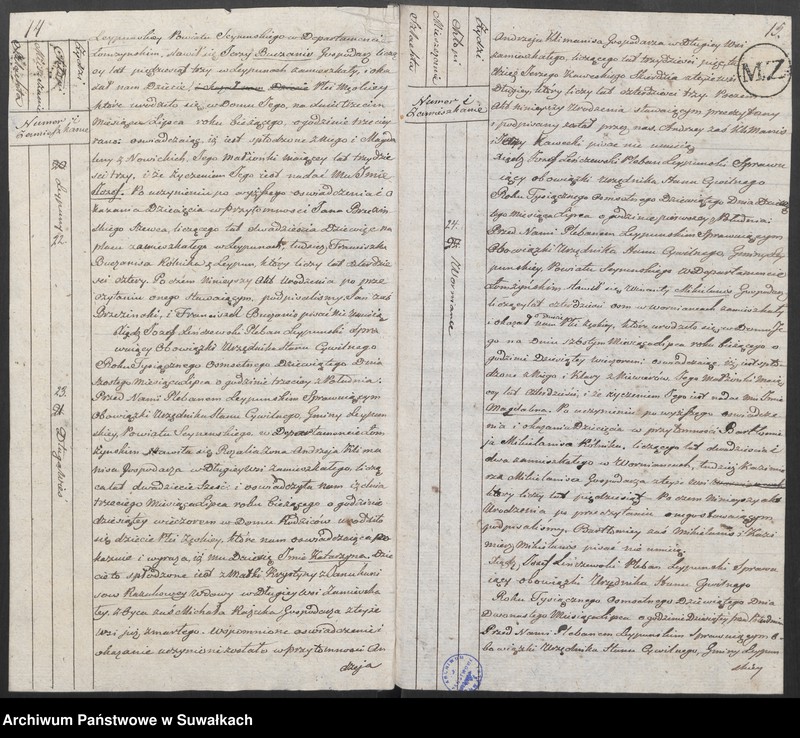 14
Szlachta
Mieszczanie
Chłopi
Żydzi
Numer i
Zamieszkanie
Leypuny
22.
23.
Długa Wieś
Leypunskiey Powiatu Seynenskiego w Departamencie
Łomzynskim, stawił się Jerzy Buzanis Gospodarz liczą
cy lat pięćdziesiąt trzy w Leypunach zamieszkały, i oka
zał nam Dziecię Płci Męskiey
które urodziło się w Domu Jego, na dniu trzecim
Miesiąca Lipca roku bieżącego, o godzinie trzeciey
rano: oświadczaiąc, iż iest spłodzone z niego i Magda
leny z Nowickich, Jego małżonki maiącey lat trzydzie
ści trzy, i że życzeniem Jego iest nadać Mu Imie
Jozef. Po uczynieniu powyższego oświadczenia i o
kazania Dziecięcia w przytomności Jana Brzeziń
skiego Szewca, liczącego lat dwadzieścia dziewięć na
placu zamieszkałego w Leypunach, tudziesz Franciszka
Buzanisa Rolnika z Leypun, który liczy lat czterdzie
ści cztery. Poczem Ninieyszy Akt Urodzenia po prze
czytaniu onego Stawaiącym, podpisaliśmy Jan zaś
Brzezinski, i Franciszek Buzanis pisać nie umieią
Xiądz Jozef Linczewski Pleban Leypunski Spra
wuiący Obowiązki Urzędnika Stanu Cywilnego
Roku Tysiącznego Osmsetnego Dziewiątego Dnia
Szostego Miesiąca Lipca o godzinie trzeciey z Południa:
Przed Nami Plebanem Leypunskim Sprawuiącym
Obowiązki Urzędnika Stanu Cywilnego, Gminy Leypun
skiey, Powiatu Seynenskiego, w Departamencie Łom
zynskim Stawiła się Rozalia żona Andrzeja Klima
nisa Gospodarza w Długiey Wsi zamieszkałego, licząc
ca lat dwadzieście sześć i oświadczyła nam iż dnia
trzeciego Miesiąca Lipca roku bieżącego o godzinie
dziesiątey wieczorem w Domu Rodziców urodziło
się dziecie Płci Żęskiey, które nam oświadczaiąca po
kazuie i wyraza, iż mu Daie się Imie Katarzyna, Dzie
cie to spłodzone iest z Matki Krystyny z Janukani
sow Wdowy w Długiey Wsi Zamieszka
łey, z Oyca zaś Michała Gospodarza z teyże
Wsi już zmarłego. Wspomnione oświadczenie i
okazanie uczynione zostało w przytomności An
drzeja
15.
M.Z.
Szlachta
Mieszczanie
Chłopi
Żydzi
Numer i
Zamieszkanie
24.
Worniance
Andrzeja Klimanisa Gospodarza w Długiey Wsi
zamieszkałego, liczącego lat trzydzieści pięć, tu
dzież Jerzego Kaweckiego z teyże Wsi
Długiey, który liczy lat czterdzieści trzy. Poczem
Akt ninieyszy Urodzenia stawaiącym przeczytany
i podpisany został przez nas. Andrzey zaś Klimanis
i Jerzy Kawecki pisać nie umieią
Xiądz Jozef Linczewski Pleban Leypunski Sprawu
iący obowiązki Urzędnika Stanu Cywilnego
Roku Tysiącznego Osmsetnego Dziewiątego Dnia Dziewią
tego Miesiąca Lipca o godzinie pierwszey z Południa:
Przed Nami Plebanem Leypunskim Sprawuiącym
Obowiązki Urzędnika Stanu Cywilnego Gminy Ley
punskiey, Powiatu Seynenskiego w Departamencie
Łomzynskim, stawił się Wincenty Mikielanis Gospodarz
liczący lat czterdzieści osm w Worniancach zamieszkały
i okazał nam Płci Żęskiey, które urodziło się w Domu Je
go na Dniu szóstym Miesiąca Lipca roku bieżącego o
godzinie Dziewiątey wieczorem: oswiadczaiąc, iż iest spło
dzone z Niego i Klary z Jego małżonki maią
cey lat czterdzieści, i że życzeniem Jego iest nadać mu Imie
Magdalena. Po uczynieniu powyższego oświadcze
nia i okazania Dziecięcia w przytomności Bartłomie
ja Mikielanisa Rolnika, liczącego lat dwadzieścia
dwa zamieszkałego w Worniancach, tudziesz Kazimie
rza Mikielanisa Gospodarza z teyże Wsi
który liczy lat pięćdziesiąt. Poczem Ninieyszy Akt
Urodzenia po przeczytaniu onego stawaiącym,
podpisaliśmy. Bartłomiey zaś Mikielanis i Kazi
mierz Mikielanis pisać nie umieią.
Xiądz Jozef Linczewski Pleban Leypunski Sprawu
iący obowiązki Urzędnika Stanu Cywilnego
Roku Tysiącznego Osmsetnego Dziewiątego Dnia
Dwunastego Miesiąca Lipca o godzinie Dziewiątey przed Południem
Przed Nami Plebanem Leypunskim Sprawuiącym O
bowiązki Urzędnika Stanu Cywilnego, Gminy Leypun
skiey
Archiwum Państwowe w Suwałkach